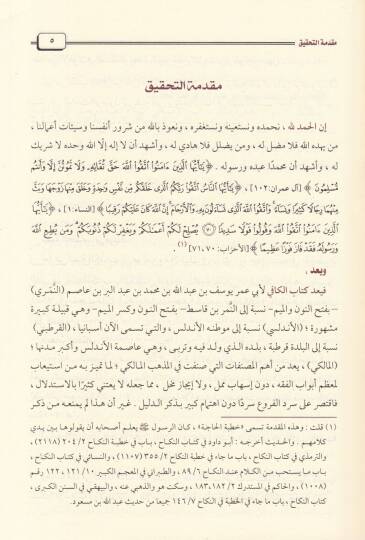 مقدمة التحقيق
٥
مقدمة التحقيق
إن الحمد لله ، نحمده ونستعينه ونستغفره ، ونعوذ بالله من شرور أنفسنا وسيئات أعمالنا ،
من يهده الله فلا مضل له ، ومن يضلل فلا هادي له ، وأشهد أن لا إله إلا الله وحده لا شريك
له ، وأشهد أن محمدًا عبده ورسوله . ﴿يَٰٓأَيُّهَا ٱلَّذِينَ ءَامَنُوا۟ ٱتَّقُوا۟ ٱللَّهَ حَقَّ تُقَاتِهِۦ وَلَا تَمُوتُنَّ إِلَّا وَأَنتُم
مُّسْلِمُونَ﴾ [آل عمران: ١٠٢] ، ﴿يَٰٓأَيُّهَا ٱلنَّاسُ ٱتَّقُوا۟ رَبَّكُمُ ٱلَّذِى خَلَقَكُم مِّن نَّفْسٍ وَٰحِدَةٍ وَخَلَقَ مِنْهَا زَوْجَهَا وَبَثَّ
مِنْهُمَا رِجَالًا كَثِيرًا وَنِسَآءً ۚ وَٱتَّقُوا۟ ٱللَّهَ ٱلَّذِى تَسَآءَلُونَ بِهِۦ وَٱلْأَرْحَامَ ۚ إِنَّ ٱللَّهَ كَانَ عَلَيْكُمْ رَقِيبًا﴾ [النساء: ١] ، ﴿يَٰٓأَيُّهَا
ٱلَّذِينَ ءَامَنُوا۟ ٱتَّقُوا۟ ٱللَّهَ وَقُولُوا۟ قَوْلًا سَدِيدًا ۝٧٠ يُصْلِحْ لَكُمْ أَعْمَٰلَكُمْ وَيَغْفِرْ لَكُمْ ذُنُوبَكُمْ ۗ وَمَن يُطِعِ ٱللَّهَ
وَرَسُولَهُۥ فَقَدْ فَازَ فَوْزًا عَظِيمًا﴾ [الأحزاب: ٧٠، ٧١] (١) .
وبعد ،
فيعد كتاب الكافي لأبي عمر يوسف بن عبد الله بن محمد بن عبد البر بن عاصم (النَّمَري)
-بفتح النون والميم- نسبة إلى النَّمر بن قاسط- بفتح النون وكسر الميم- وهي قبيلة كبيرة
مشهورة ؛ (الأندلسي) نسبة إلى موطنه الأندلس ، والتي تسمى الآن أسبانيا ، (القرطبي)
نسبة إلى البلدة قرطبة ، بلده الذي ولد فيه وتربى ، وهي عاصمة الأندلس وأكبر مدنها ؛
(المالكي) ، يعد من أهم المصنفات التي صنفت في المذهب المالكي ؛ لما تميز به من استيعاب
لمعظم أبواب الفقه ، دون إسهاب ممل ، ولا إيجاز مخل ، مما جعله لا يعتني كثيرًا بالاستدلال ،
فاقتصر على سرد الفروع سردًا دون اهتمام كبير بذكر الدليل . غير أن هذا لم يمنعه من ذكر
(١) قلت : وهذه المقدمة تسمى «خطبة الحاجة» ، كان الرسول ﷺ يعلم أصحابه أن يقولوها بين يدي
كلامهم . والحديث أخرجه : أبو داود في كتاب النكاح ، باب في خطبة النكاح ٢/ ٢٠٤ (٢١١٨) ،
والترمذي في كتاب النكاح ، باب ما جاء في خطبة النكاح ٢/ ٣٥٥ (١١٠٧) ، والنسائي في كتاب النكاح ،
باب ما يستحب من الكلام عند النكاح ٦/ ٨٩ ، والطبراني في المعجم الكبير ١٠/ ١٢١ ، ١٢٢ رقم
(١٠٠٨) ، والحاكم في المستدرك ٢/ ١٨٢ ، ١٨٣ ، وسكت هو والذهبي عنه ، والبيهقي في السنن الكبرى ،
كتاب النكاح ، باب ما جاء في الخطبة في النكاح ٧/ ١٤٦ جميعا من حديث عبد الله بن مسعود .